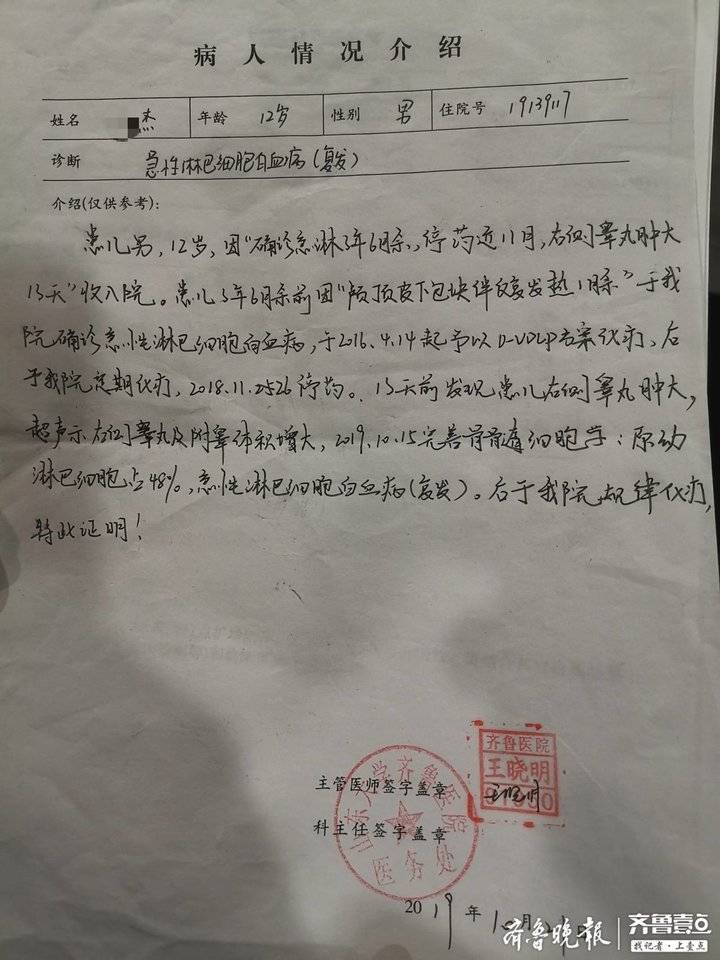 病人情况介绍
姓名 杰 年龄 12岁 性别 男 住院号 19139117
诊断 急性淋巴细胞白血病(复发)
介绍(仅供参考):
患儿男,12岁,因"确诊急淋3年6月余,停药近11月,右侧睾丸肿大
13天"收入院。患儿3年6月余前因"颅顶皮下包块伴反复发热1月余"于我
院确诊急性淋巴细胞白血病,于2016.4.14起予以D-VDLP方案化疗、后
于我院定期化疗,2018.11.25停药。13天前发现患儿右侧睾丸肿大,
超声示右侧睾丸及附睾体积增大,2019.10.15完善骨髓细胞学:原幼
淋巴细胞占48%,急性淋巴细胞白血病(复发)。后于我院规律化疗,
特此证明!
齐鲁医院
王晓明
主管医师签字盖章
王晓明
科主任签字盖章
山东大学齐鲁医院
医务处
2019年10月
齐鲁晚报
齐鲁壹点
找记者·上壹点